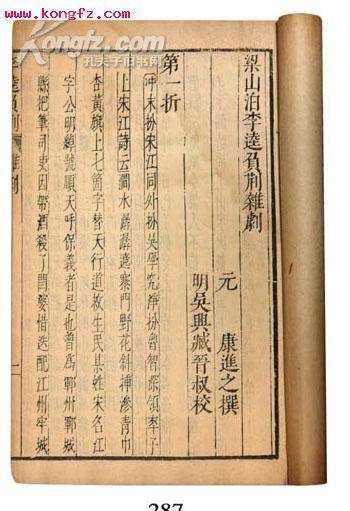 www.kongfz.com
www.kongfz.com
孔夫子旧书网
梁山泊李逵負荊雜劇
元 康進之撰
明吳興臧晉叔校
第一折
冲末扮宋江同外扮吳學究淨扮魯智深領卒子
上宋江詩云澗水潺潺遶寨門野花斜揷滲青巾
杏黃旗上七箇字替天行道救生民某姓宋名江
字公明綽號順天呼保義者是也曾爲鄆州鄆城
縣把筆司吏因帶酒殺了閻婆惜迭配江州牢城
李逵負荊 雜劇 一
287